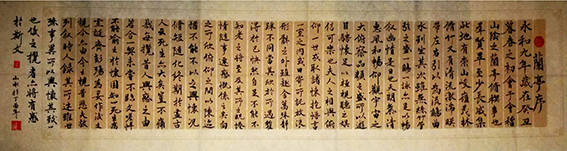 蘭亭序
永和九年歲在癸丑
暮春之初會于會稽
山陰之蘭亭脩稧事也
羣賢畢至少長咸集
此地有崇山峻領茂林
脩竹又有清流激湍映
帶左右引以為流觴曲
水列坐其次雖無絲竹管
弦之盛一觴一詠亦足以暢
叙幽情是日也天朗氣清
惠風和暢仰觀宇宙之
大俯察品類之盛所以遊
目騁懷足以極視聽之娛
信可樂也夫人之相與俯
仰一世或取諸懷抱悟言
一室之內或因寄所託放浪
形骸之外雖趣舍萬殊靜
躁不同當其欣於所遇暫
得於己快然自足不知
老之將至及其所之既惓
情隨事遷感慨係之矣向
之所欣俛仰之間以為陳
迹猶不能不以之興懷況
脩短隨化終期於盡古
人云死生亦大矣豈不痛
哉每攬昔人興感之由
若合一契未嘗不臨文嗟悼
不能喻之於懷固知一死生為
虛誕齊彭殤為妄作後之
視今亦由今之視昔悲夫故
列叙時人錄其所述雖世
殊事異所以興懷其致一
也後之攬者亦將有感
於斯文